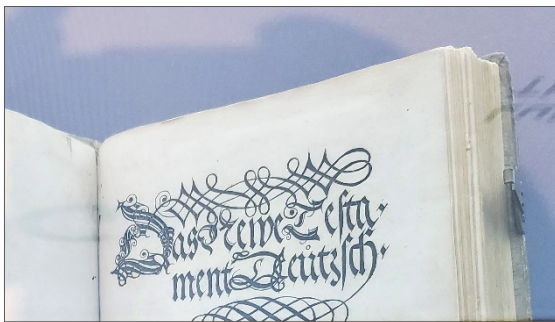 Das Newe Testa-
ment Deutzsch.